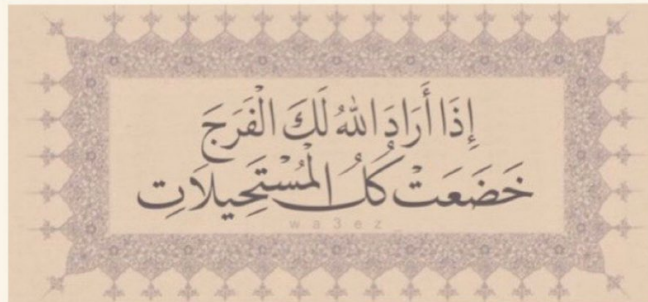 إِذَا أَرَادَ اللهُ لَكَ الْفَرَجَ
خَضَعَتْ كُلُ الْمُسْتَحِيلَاتِ
wa3ez_